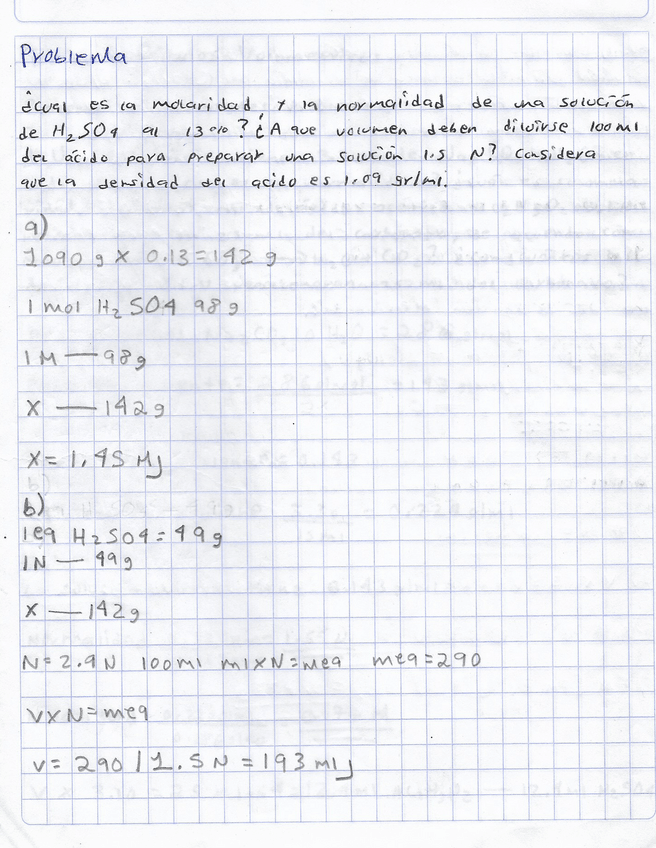 Problema
¿cual es la molaridad y la normalidad de una solución
de H₂SO4 al 13%? ¿A que volumen deben diluirse 100ml
del ácido para preparar una solución 1.5 N? Considera
que la densidad del acido es 1.09 gr/ml.
a)
1090 g x 0.13=142 g
1 mol H₂SO4 98g
1M — 98g
X — 142g
X= 1.45 M
b)
1eq H₂SO4= 49g
1N — 49g
X — 142g
N= 2.9N 100ml mlxN=meq meq=290
VxN=meq
V= 290/1.5N=193 ml